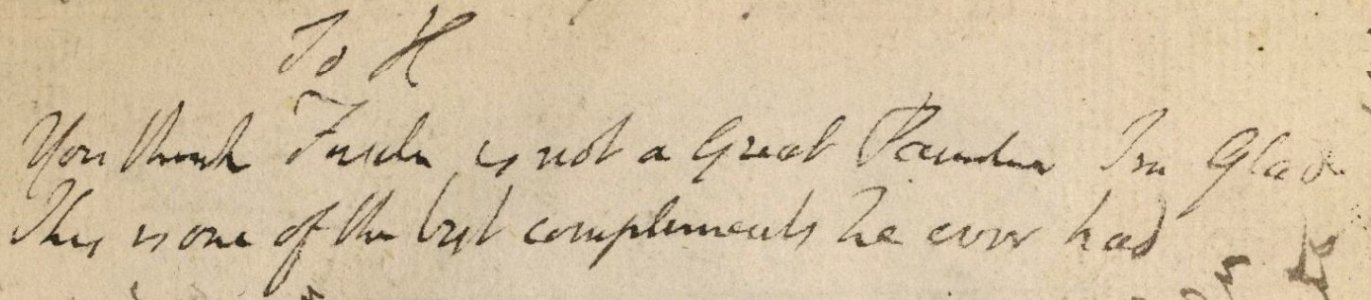 To H
You think Fuseli is not a Great Painter Im Glad
This is one of the best complements he ever had